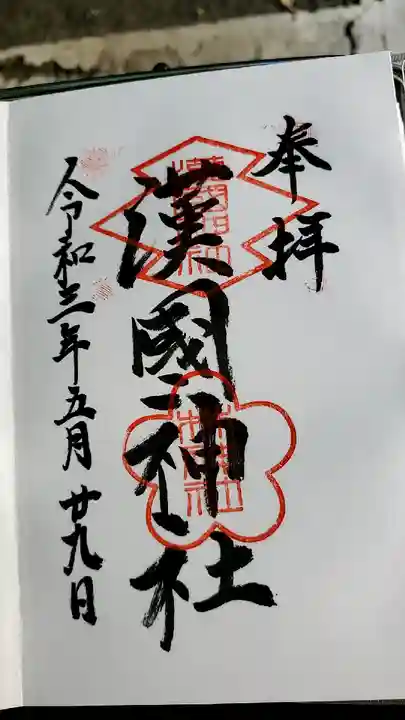 奉拝
漢國神社
令和三年五月廿九日